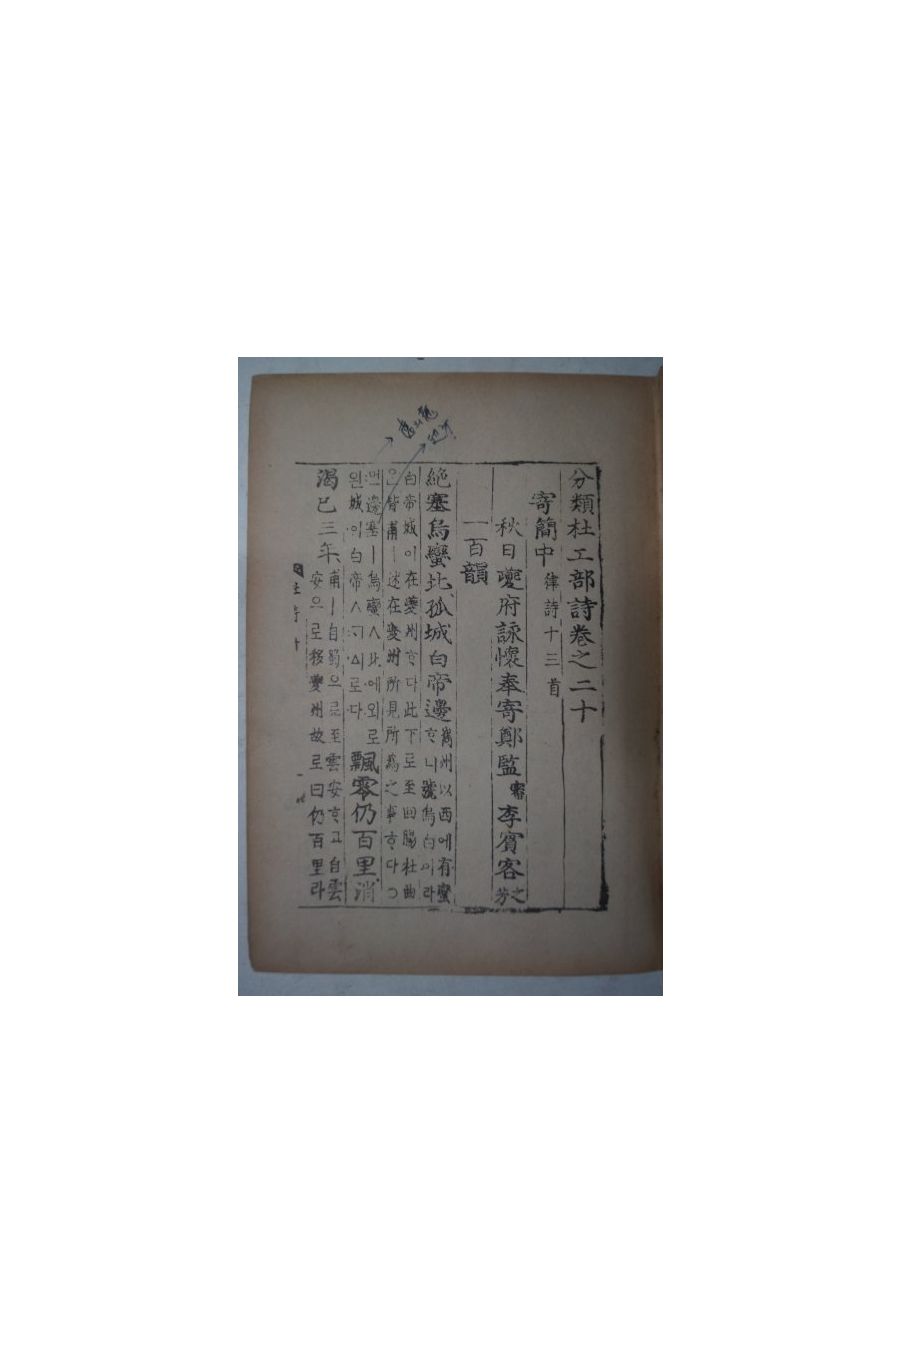 分類杜工部詩卷之二十
寄簡中 律詩十三首
秋日夔府詠懷奉寄鄭監審李賓客之芳
一百韻
絶塞烏蠻北孤城白帝邊 嶲州以西에有蠻ᄒᆞ니號烏白이라
白帝城이在夔州ᄒᆞ다此下로至回腸杜曲
은皆甫ㅣ述在夔州所見所爲之事ᄒᆞ다○
먼邊塞ㅣ烏蠻ㅅ北에외로
왼城이白帝ㅅᄀᆞᅀᅵ로다 飄零仍百里消
渴已三年 甫ㅣ自蜀으로至雲安ᄒᆞ고自雲
安으로移夔州故로曰仍百里라